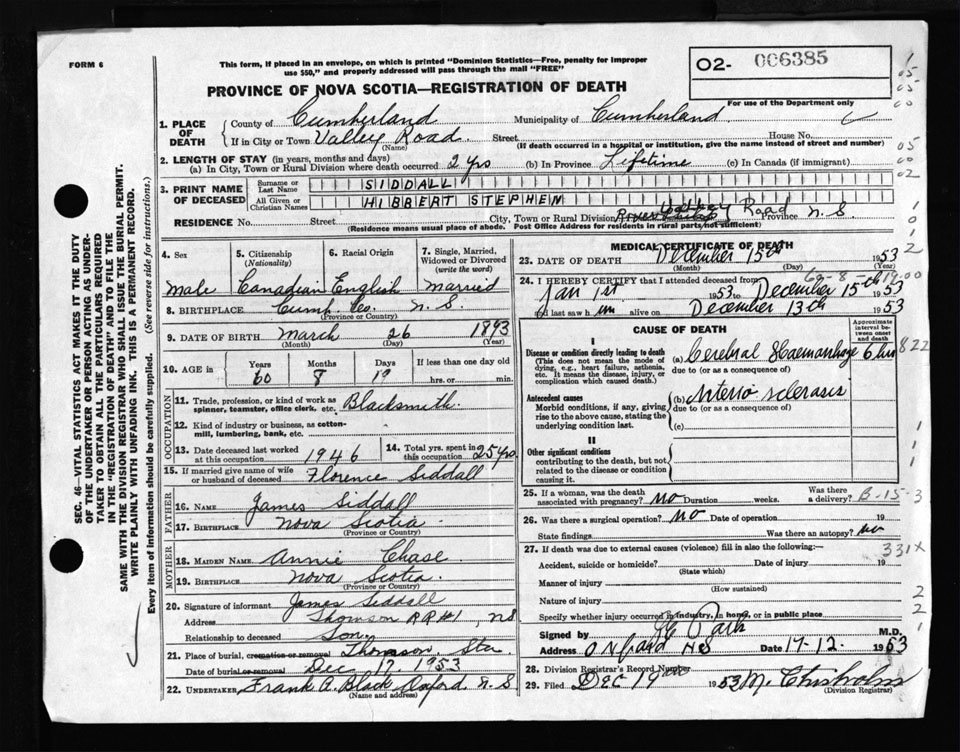 FORM 6
This form, if placed in an envelope, on which is printed "Dominion Statistics—Free, penalty for improper
use $50," and properly addressed will pass through the mail "FREE"
O2- 006385
For use of the Department only
PROVINCE OF NOVA SCOTIA—REGISTRATION OF DEATH
1. PLACE OF DEATH
County of Cumberland Municipality of Cumberland
If in City or Town Valley Road Street House No.
(Name) (If death occurred in a hospital or institution, give the name instead of street and number)
2. LENGTH OF STAY (in years, months and days)
(a) In City, Town or Rural Division where death occurred 2 yrs (b) In Province Lifetime (c) In Canada (if immigrant)
3. PRINT NAME OF DECEASED
Surname or Last Name SIDDALL
All Given or Christian Names HIBBERT STEPHEN
RESIDENCE No. Street City, Town or Rural Division Valley Road Province N.S
(Residence means usual place of abode. Post Office Address for residents in rural parts not sufficient)
4. Sex
Male
5. Citizenship
(Nationality)
Canadian
6. Racial Origin
English
7. Single, Married, Widowed or Divorced
(write the word)
Married
8. BIRTHPLACE Cumb. Co. N.S
(Province or Country)
9. DATE OF BIRTH March 26 1893
(Month) (Day) (Year)
10. AGE in Years Months Days If less than one day old
60 8 19 hrs. or min.
OCCUPATION
11. Trade, profession, or kind of work as
spinner, teamster, office clerk, etc. Blacksmith.
12. Kind of industry or business, as cotton-
mill, lumbering, bank, etc.
13. Date deceased last worked at this occupation 1946
14. Total yrs. spent in this occupation 25 yrs.
15. If married give name of wife
or husband of deceased Florence Siddall
FATHER
16. NAME James Siddall
17. BIRTHPLACE Nova Scotia.
(Province or Country)
MOTHER
18. MAIDEN NAME Annie Chase
19. BIRTHPLACE Nova Scotia.
(Province or Country)
20. Signature of informant James Siddall
Address Thomson RR#1, NS
Relationship to deceased Son
21. Place of burial, cremation or removal Thomson. Sta.
Date of burial or removal Dec 17. 1953
22. UNDERTAKER Frank A. Black Oxford N.S
(Name and address)
MEDICAL CERTIFICATE OF DEATH
23. DATE OF DEATH December 15th 1953
(Month) (Day) (Year)
24. I HEREBY CERTIFY that I attended deceased from
Jan 1st 1953 to December 15th 1953
I last saw him alive on December 13th 1953
CAUSE OF DEATH
Approximate interval between onset and death
I
Disease or condition directly leading to death
(This does not mean the mode of
dying, e.g., heart failure, asthenia,
etc. It means the disease, injury, or
complication which caused death.)
(a) Cerebral Haemorrhage 6 hrs
due to (or as a consequence of)
822
Antecedent causes
Morbid conditions, if any, giving
rise to the above cause, stating the
underlying condition last.
(b) Arterio sclerosis
due to (or as a consequence of)
(c)
II
Other significant conditions
contributing to the death, but not
related to the disease or condition
causing it.
25. If a woman, was the death
associated with pregnancy? No Duration weeks. Was there a delivery?
B-15-3
26. Was there a surgical operation? No Date of operation 19
State findings Was there an autopsy? No
27. If death was due to external causes (violence) fill in also the following:—
331X
Accident, suicide or homicide? Date of injury 19
(State which)
Manner of injury
(How sustained)
Nature of injury
Specify whether injury occurred in industry, in home, or in public place
Signed by M.D.
Address Oxford NS Date 17-12. 1953
28. Division Registrar's Record Number
29. Filed Dec 19 1953 M. Chisholm
(Division Registrar)
SEC. 46—VITAL STATISTICS ACT MAKES IT THE DUTY
OF THE UNDERTAKER OR PERSON ACTING AS UNDER-
TAKER TO OBTAIN ALL THE PARTICULARS REQUIRED
IN THE "REGISTRATION OF DEATH" AND TO FILE THE
SAME WITH THE DIVISION REGISTRAR WHO SHALL ISSUE THE BURIAL PERMIT.
WRITE PLAINLY WITH UNFADING INK. THIS IS A PERMANENT RECORD.
Every item of information should be carefully supplied. (See reverse side for instructions.)